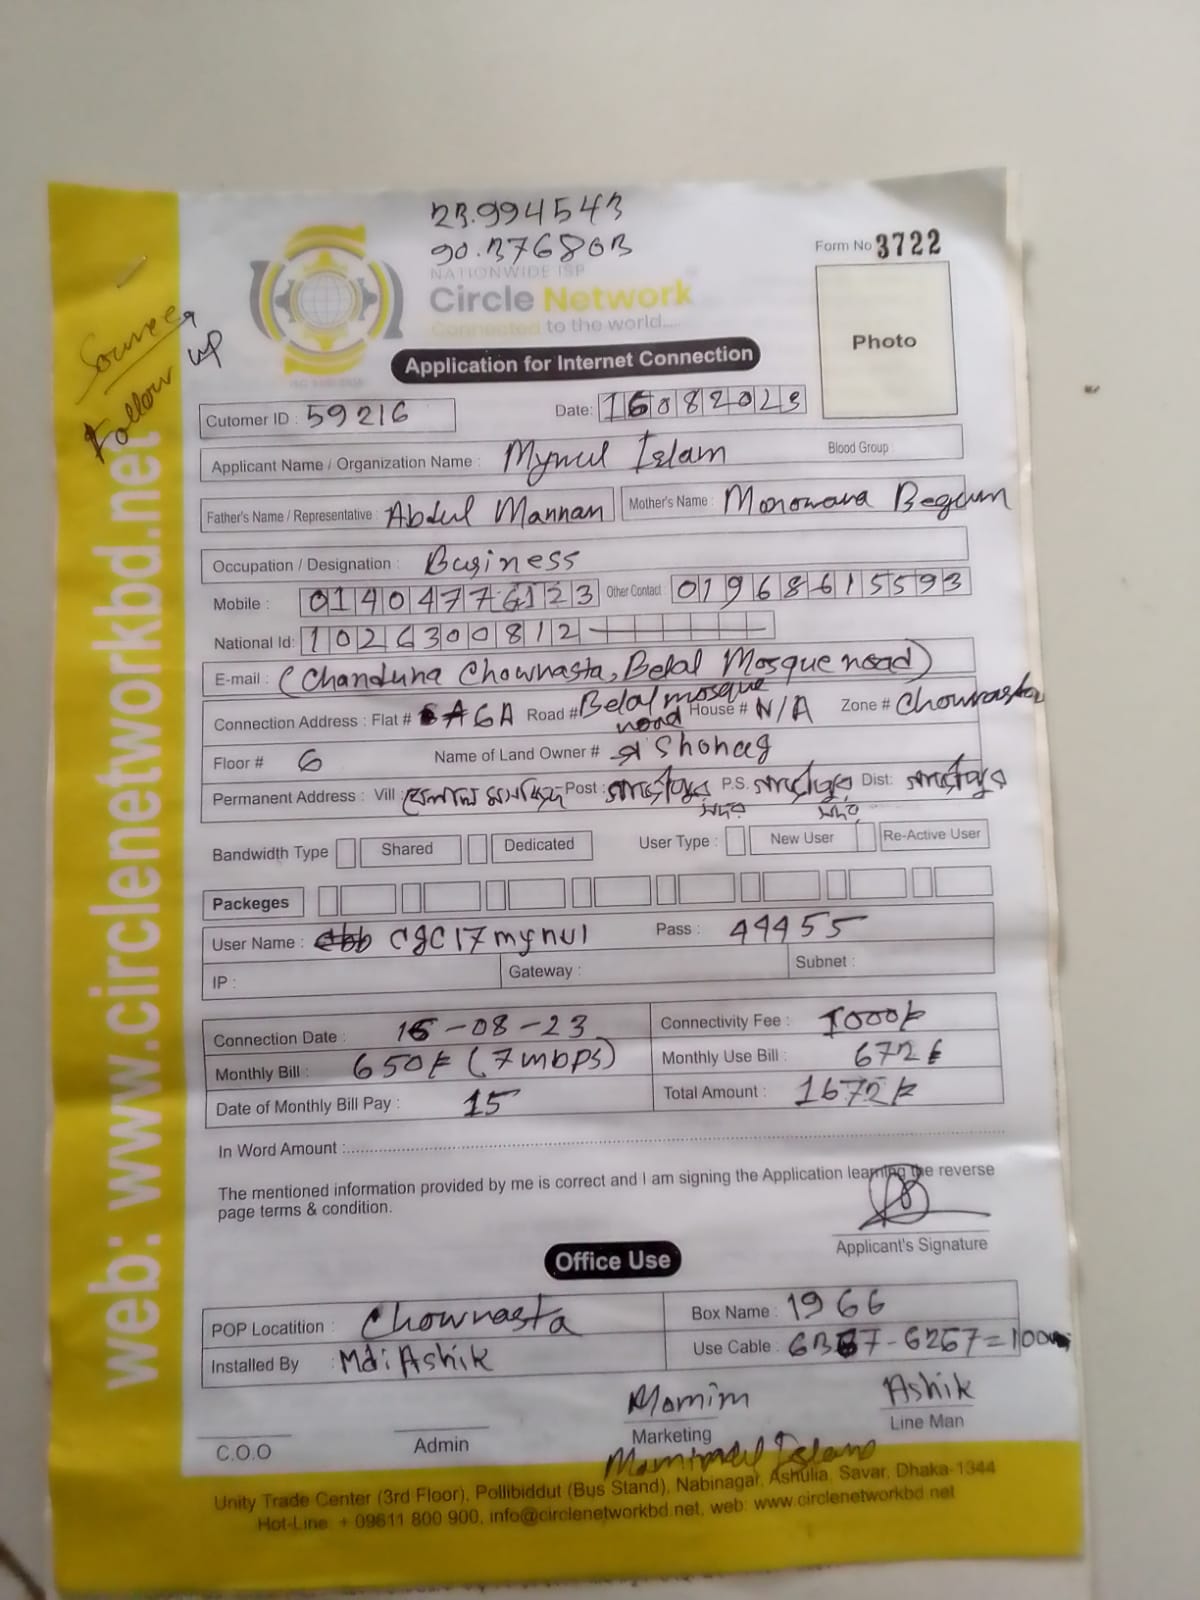 23.994543
90.376803
Form No 3722
NATIONWIDE ISP
Circle Network
Connected to the world....
Photo
Follow up
Application for Internet Connection
Cutomer ID : 59216 Date: 16082023
Applicant Name / Organization Name : Mynul Islam Blood Group
Father's Name / Representative : Abdul Mannan Mother's Name : Monowara Begum
Occupation / Designation : Business
Mobile : 01404776123 Other Contact 01968615593
National Id: 1026300812
E-mail : (Chanduna Chowrasta, Belal Mosque road)
Connection Address : Flat # 6A Road # Belal mosque road House # N/A Zone # Chowrasta
Floor # 6 Name of Land Owner # Shohag
Permanent Address : Vill Post : P.S. Dist:
সদর সদর
Bandwidth Type Shared Dedicated User Type : New User Re-Active User
Packeges
User Name : cgc17mynul Pass : 44455
IP : Gateway : Subnet :
Connection Date : 16-08-23 Connectivity Fee : 1000/-
Monthly Bill : 650/- (7mbps) Monthly Use Bill : 672/-
Date of Monthly Bill Pay : 15 Total Amount : 1672/-
In Word Amount :
The mentioned information provided by me is correct and I am signing the Application learning the reverse
page terms & condition.
Applicant's Signature
Office Use
POP Locatition : Chowrasta Box Name : 1966
Installed By : Md: Ashik Use Cable : 6367-6267=100m
Momim Ashik
C.O.O Admin Marketing Line Man
Unity Trade Center (3rd Floor), Pollibiddut (Bus Stand), Nabinagar, Ashulia, Savar, Dhaka-1344
Hot-Line: + 09611 800 900, info@circlenetworkbd.net, web: www.circlenetworkbd.net
web: www.circlenetworkbd.net